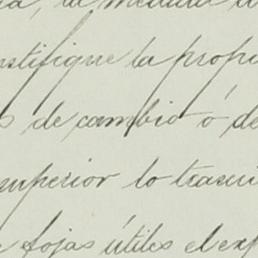 la medida
justifique la propi
s de cambio ó de
superior lo trascri
fojas útiles el exp